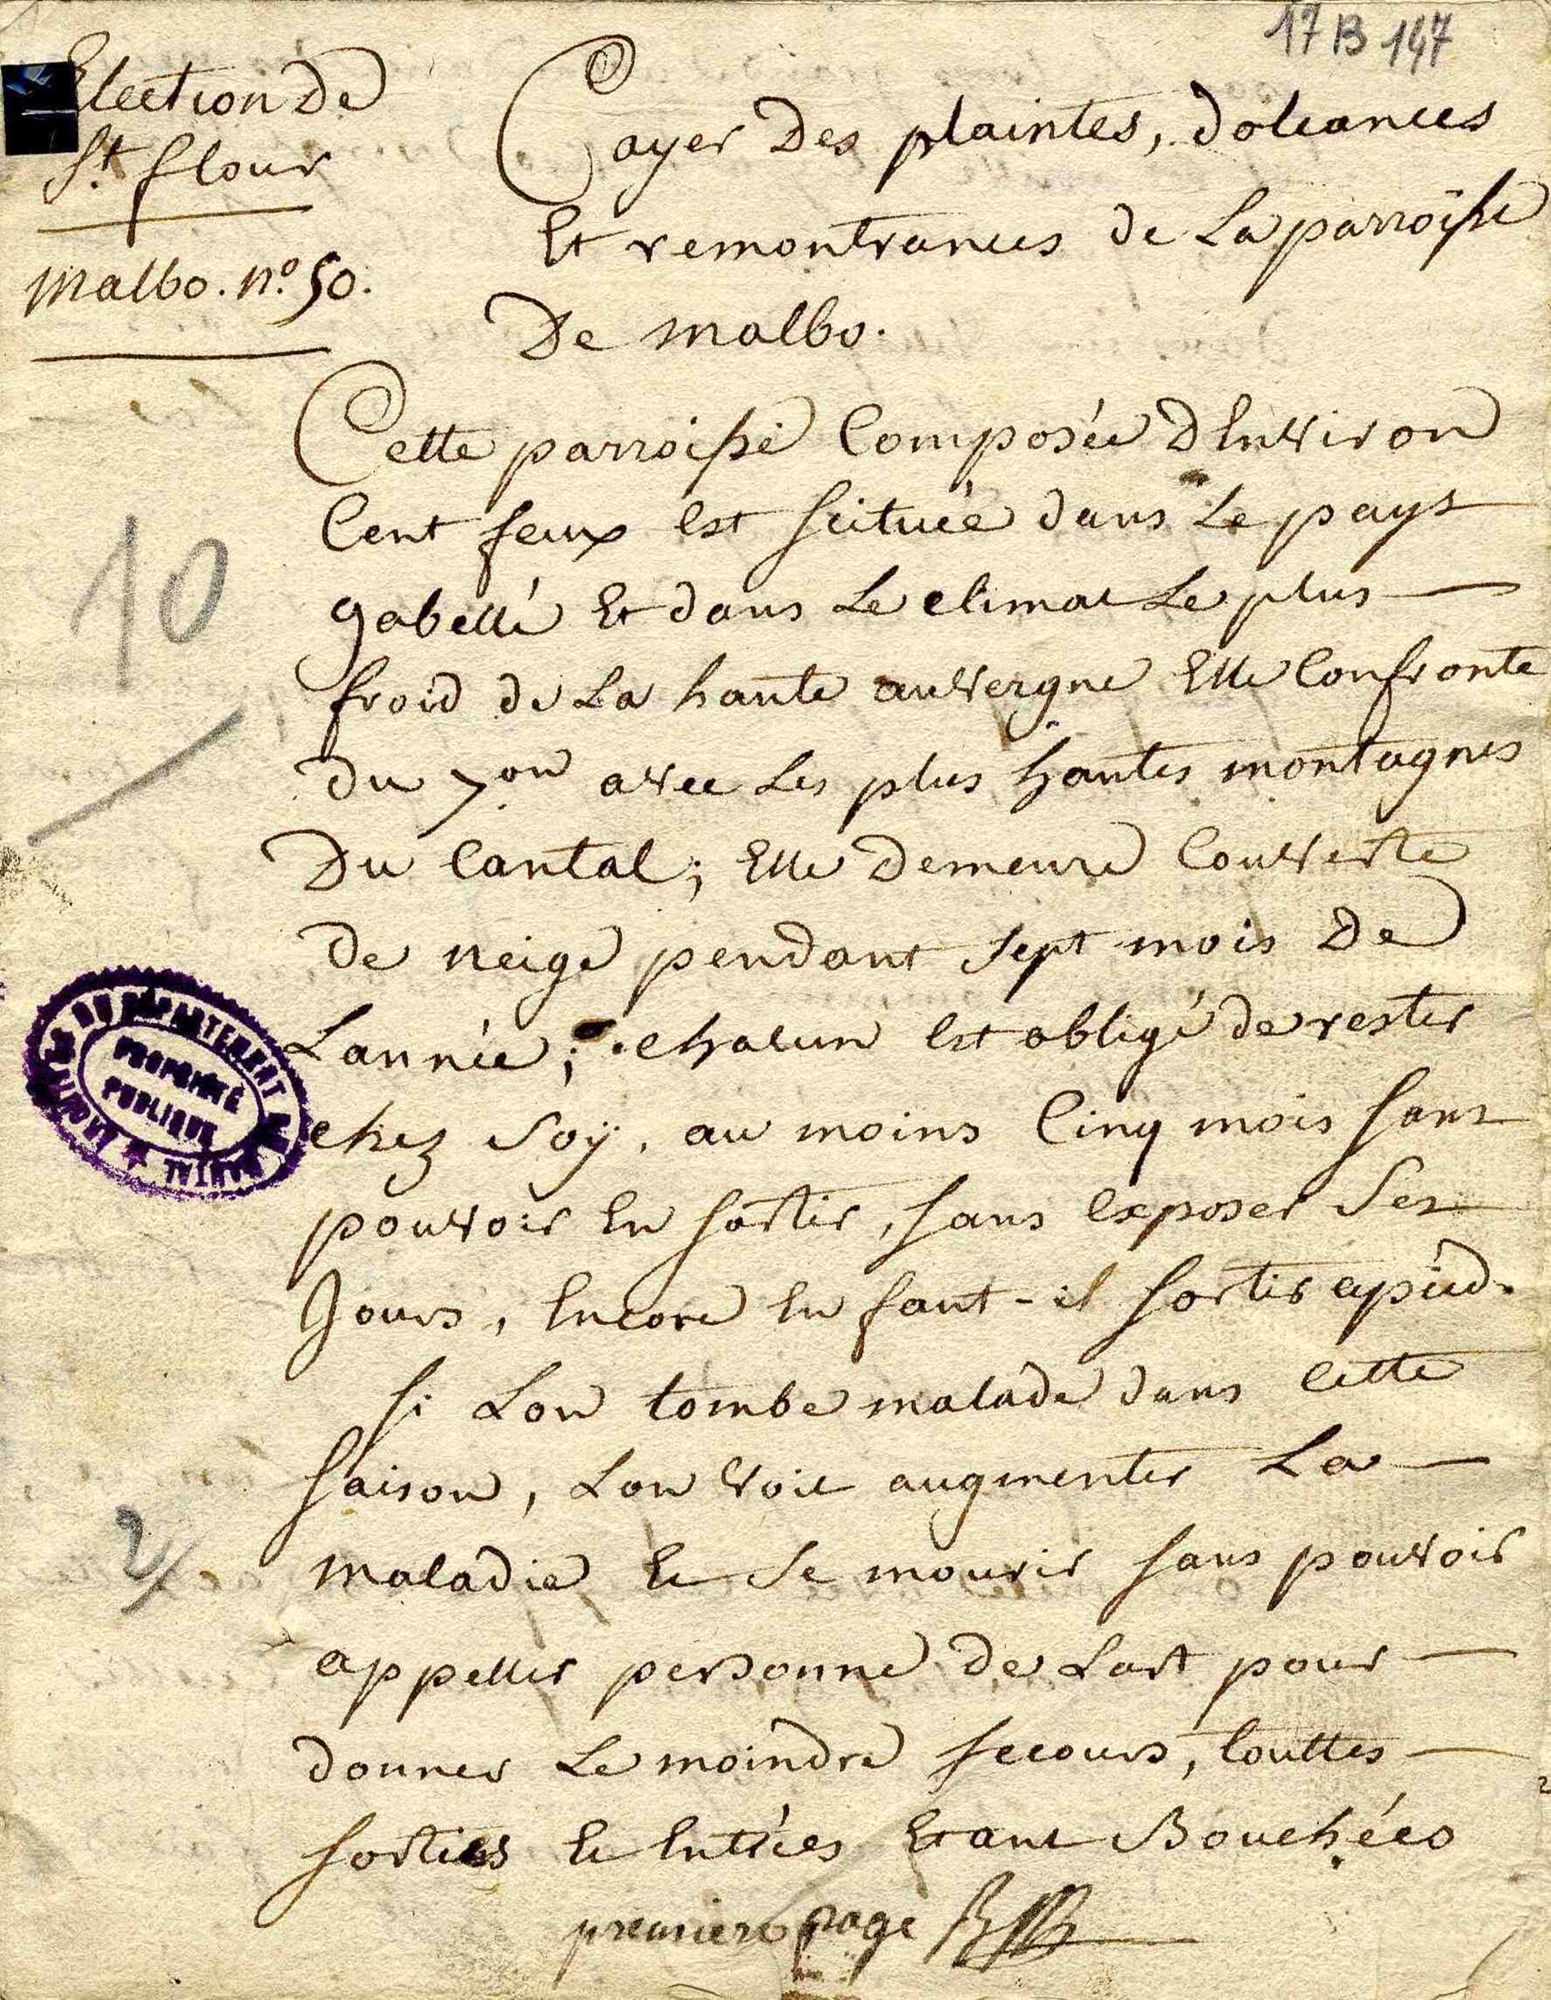 17 B 147
Election De
St flour
Malbo. n.º 50.
Cayer Des plaintes, doleances
Et remontrances de La parroisse
De malbo.
Cette parroisse Composée d'Environ
Cent feux Est scituée dans Le pays
gabellé Et dans Le climat Le plus
froid de La haute auvergne Elle Confronte
du 7on avec Les plus hautes montagnes
Du Cantal ; Elle Demeure Couverte
de neige pendant sept mois De
Lannée ; chacun Est obligé de rester
chez Soÿ, au moins Cinq mois sans
pouvoir En sortir, sans exposer Ses
Jours, Encore En faut-il sortir apied.
si Lon tombe malade dans Cette
saison, Lon voit augmenter La
maladie Et Se mourir sans pouvoir
appeller personne de Lart pour
donner Le moindre secours, touttes
sorties Et Entrées Etant Bouchées
premiere page
10
2
ARCHIVES DU DÉPARTEMENT DU CANTAL
PROPRIÉTÉ
PUBLIQUE